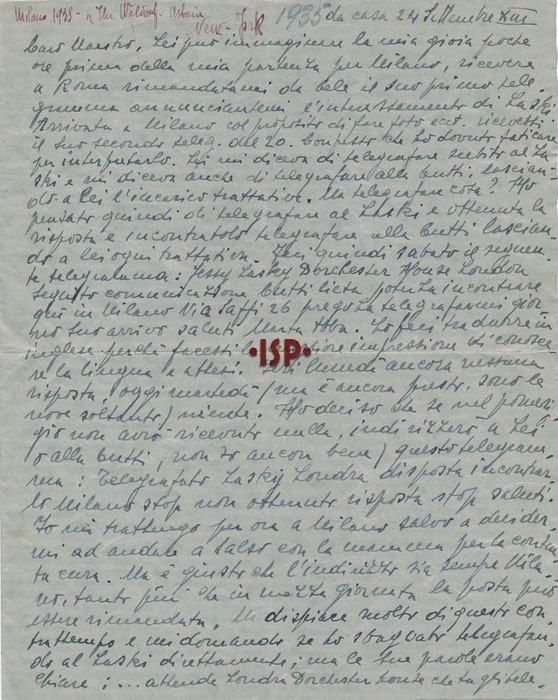 Milano 1935 - a The Waldorf Astoria
New-York
1935 da casa 24 Settembre XIII
Caro Maestro, Lei può immaginare la mia gioia poche
ore prima della mia partenza per Milano, ricevere
a Roma rimandatami da bele il suo primo tele
gramma annunciantemi l'interessamento di Laski
Arrivata a Milano col proposito di fare foto ect. ricevetti
il suo secondo teleg. del 20. Confesso che ho dovuto faticare
per interpretarlo. Lei mi diceva di telegrafare subito al La
ski e mi diceva anche di telegrafare alla Cutti, lascian
dole a lei l'incarico trattative. Ma telegrafare cosa? Ho
pensato quindi di telegrafare al Laski e ottenuta la
risposta e incontratolo telegrafare alla Cutti lascian
do a lei ogni trattativa. Feci quindi sabato il seguen
te telegramma: Jessy Lasky Dorchester House London
seguito comunicazione Cutti lieta poterla incontrare
qui in Milano Via Saffi 26 pregola telegrafarmi gior
no suo arrivo saluti Marta Abba. Lo feci tradurre in
inglese perché facesti impressione di conosce
re la lingua e attesi. Ieri lunedì ancora nessuna
risposta, oggi martedì (ma è ancora presto, sono le
nove soltanto) niente. Ho deciso che se nel pomerig
gio non avrò ricevuto nulla, indirizzerò a Lei
o alla Cutti, non so ancora bene) questo telegram
ma: Telegrafato Lasky Londra disposta incontrar
lo Milano stop non ottenuto risposta stop saluti
Io mi trattengo per ora a Milano salvo a decider
mi ad andare a Salso con la mamma per la
cura. Ma è giusto che l'indirizzo sia sempre Mila
no, tanto più che in mezza giornata la posta può
essere rimandata. Mi dispiace molto di questo con
trattempo e mi domando se ho sbagliato telegrafan
do al Laski direttamente; ma le sue parole erano
chiare: ... attende Londra Dorchester house che tu gli tele-
·ISP·